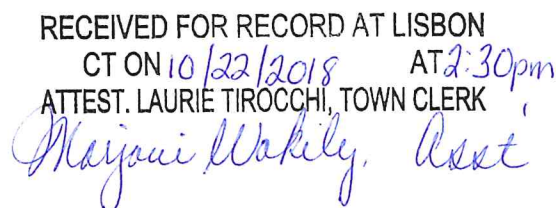 RECEIVED FOR RECORD AT LISBON
CT ON 10/22/2018 AT 2:30pm
ATTEST. LAURIE TIROCCHI, TOWN CLERK
Marjorie Wakily, Asst